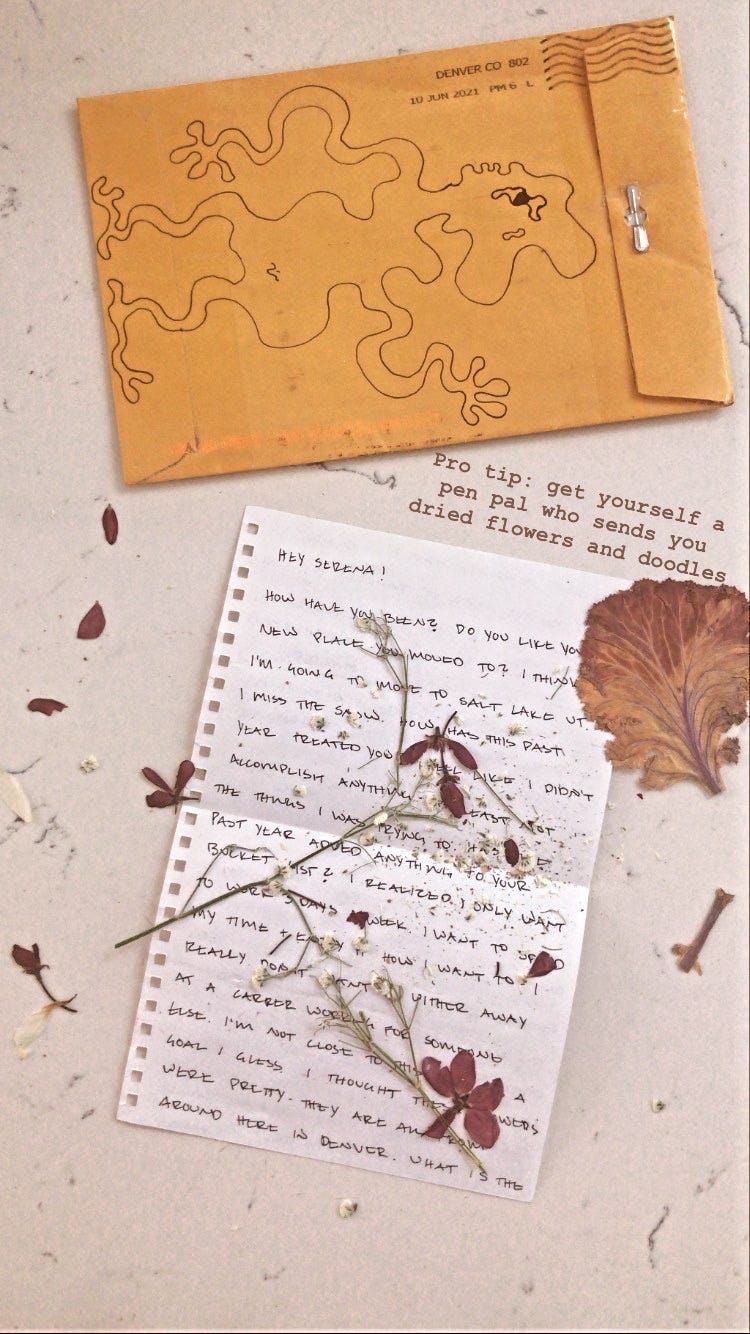 DENVER CO 802
10 JUN 2021 PM 6 L
Pro tip: get yourself a
pen pal who sends you
dried flowers and doodles
HEY SERENA!
HOW HAVE YOU BEEN? DO YOU LIKE
NEW PLACE YOU MOVED TO? I THINK
I'M GOING TO MOVE TO SALT LAKE UT.
I MISS THE SNOW. HOW HAS THIS PAST
YEAR TREATED YOU LIKE I DIDN'T
ACCOMPLISH
THE THINGS I WAS TRYING TO
PAST YEAR ADDED ANYTHING TO YOUR
BUCKET LIST? I REALIZED I ONLY WANT
TO WORK DAYS A WEEK. I WANT TO
MY TIME + HOW I WANT TO I
REALLY DON'T AWAY
AT A CAREER WORKING FOR SOMEONE
ELSE. I'M NOT CLOSE TO A
GOAL I GUESS I THOUGHT
WERE PRETTY. THEY ARE
AROUND HERE IN DENVER. WHAT IS THE